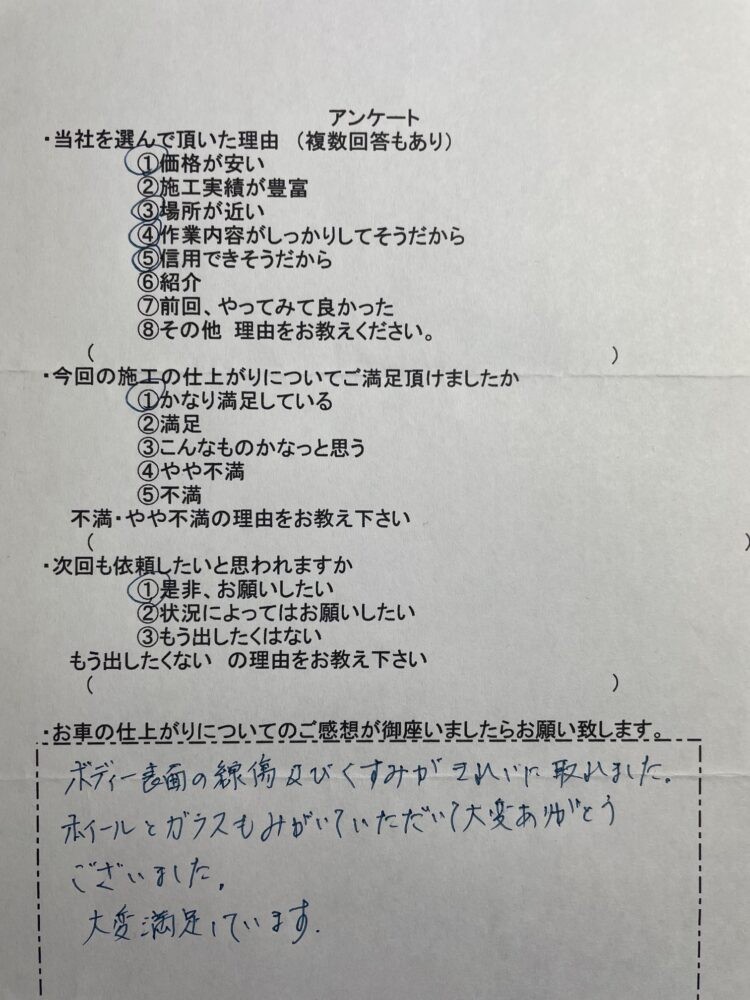 アンケート
・当社を選んで頂いた理由　（複数回答もあり）
①価格が安い
②施工実績が豊富
③場所が近い
④作業内容がしっかりしてそうだから
⑤信用できそうだから
⑥紹介
⑦前回、やってみて良かった
⑧その他　理由をお教えください。
（　　　　　　　　　　　　　　　　　　　　）
・今回の施工の仕上がりについてご満足頂けましたか
①かなり満足している
②満足
③こんなものかなっと思う
④やや不満
⑤不満
不満・やや不満の理由をお教え下さい
（　　　　　　　　　　　　　　　　　　　　）
・次回も依頼したいと思われますか
①是非、お願いしたい
②状況によってはお願いしたい
③もう出したくはない
もう出したくない　の理由をお教え下さい
（　　　　　　　　　　　　　　　　　　　　）
・お車の仕上がりについてのご感想が御座いましたらお願い致します。
ボディー表面の線傷及びくすみがきれいに取れました。
ホイールとガラスもみがいていただいて大変ありがとう
ございました。
大変満足しています.